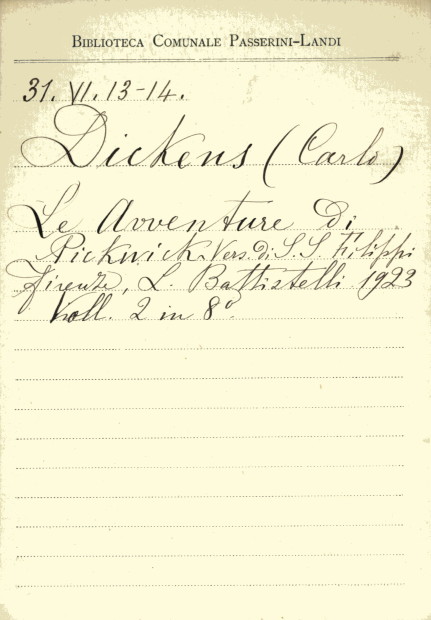 BIBLIOTECA COMUNALE PASSERINI-LANDI
31. VI. 13-14.
Dickens (Carlo)
Le Avventure di
Pickwick. Vers. di S. S. Filippi
Firenze, L. Battistelli 1923
Voll. 2 in 8°.